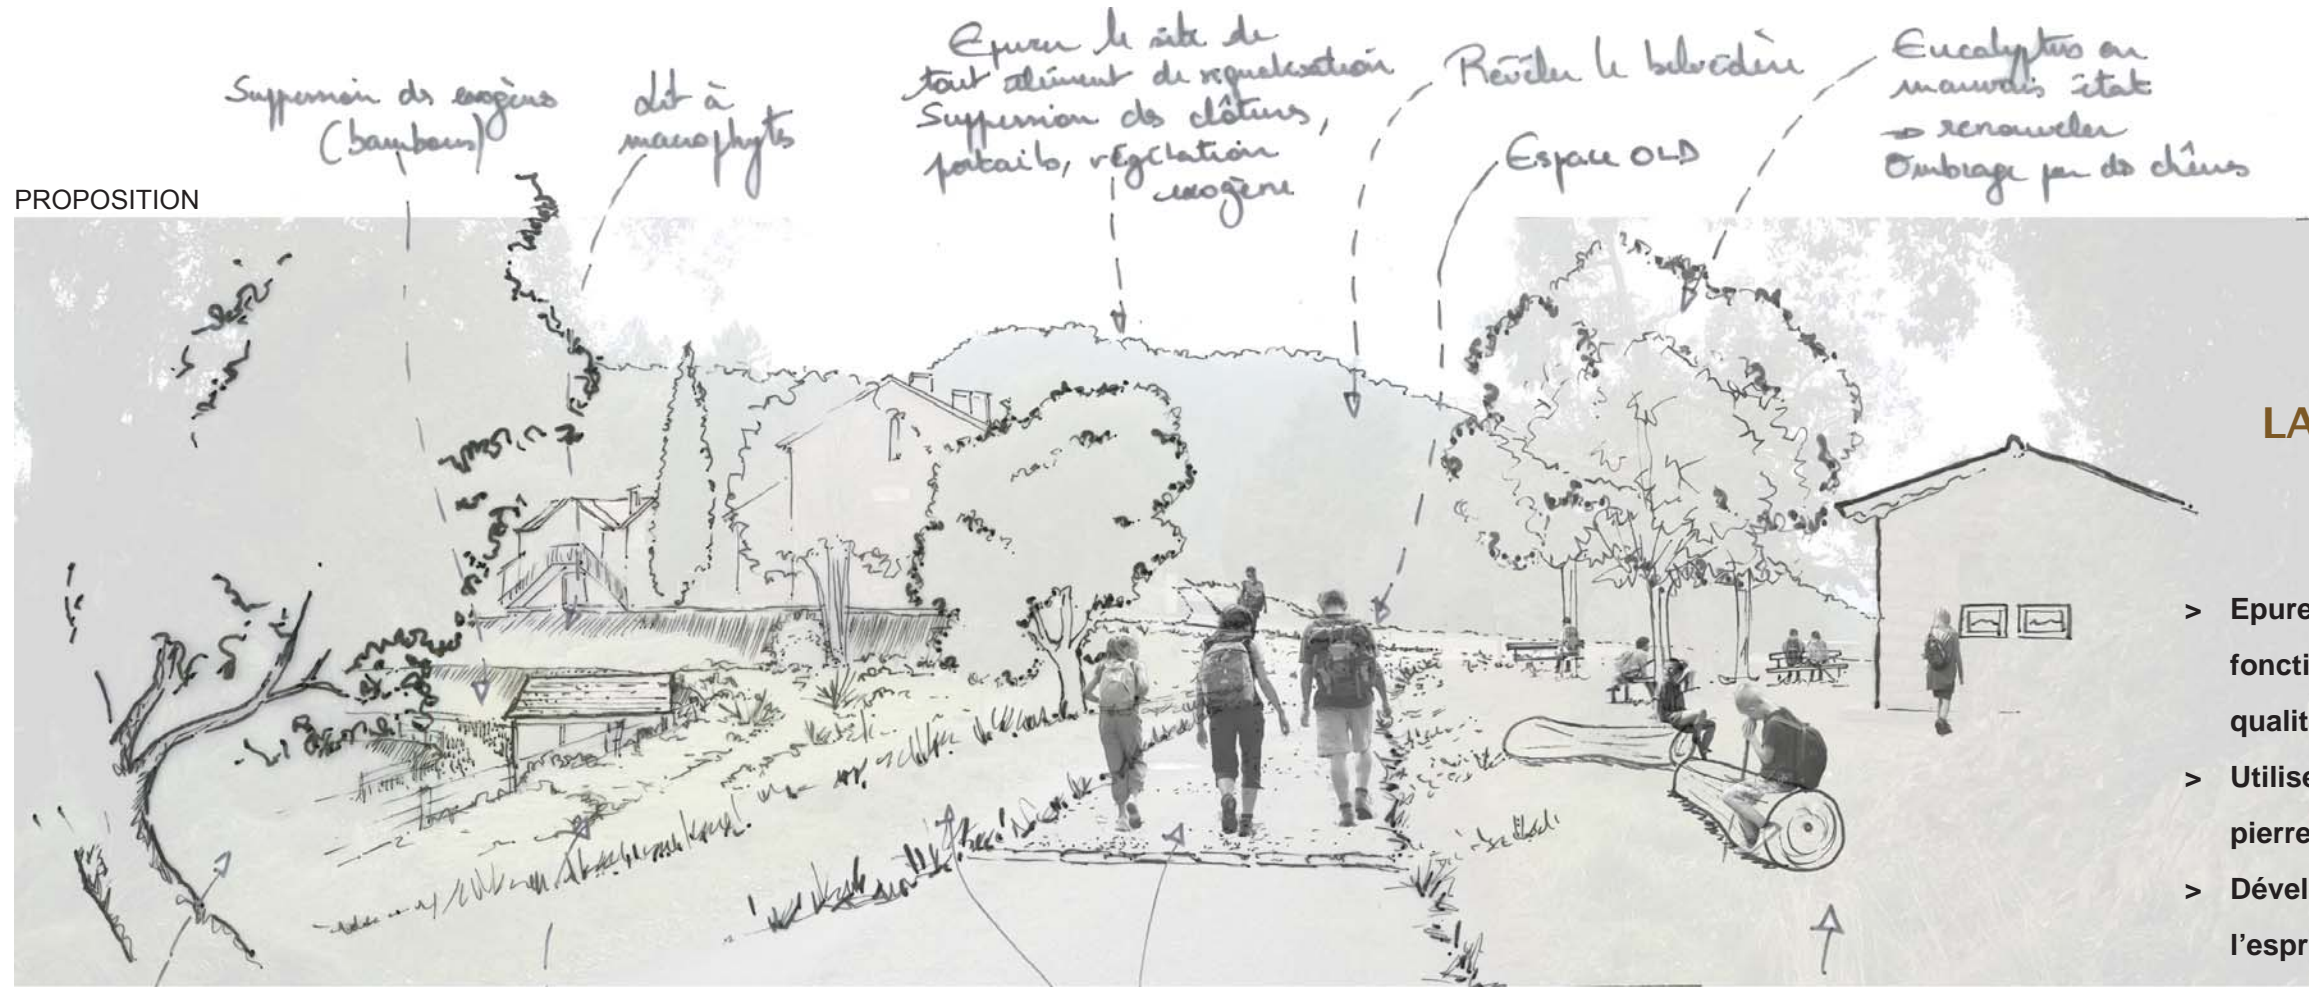 Suppression des exogènes
(bambous)
Lit à
macrophytes
Epurer le site de
tout élément de signalisation
Suppression des clôtures,
portails, végétation
exogène
Révéler le belvédère
Espace OLD
Eucalyptus en
mauvais état
→ renouveler
Ombrage par des chênes
PROPOSITION
LA
> Epure
foncti
qualit
> Utilise
pierre
> Dével
l'espr